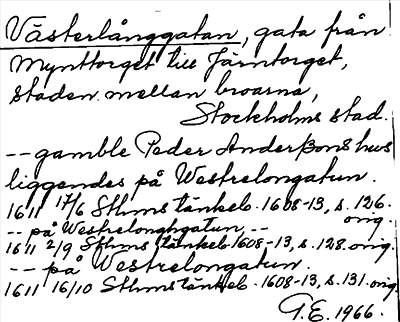 Västerlånggatan, gata från
Mynttorget till Järntorget,
staden mellan broarna,
Stockholms stad.
-- gamble Peder Anderßons hus
liggendes på Westrelongatun.
1611 17/6 Sthms tänkeb. 1608-13, s. 126.
orig.
-- på Westrelonghgatun --
1611 2/9 Sthms tänkeb 1608-13, s. 128. orig.
-- på Westrelongatun.
1611 16/10 Sthms tänkeb. 1608-13, s. 131. orig.
G.E. 1966.